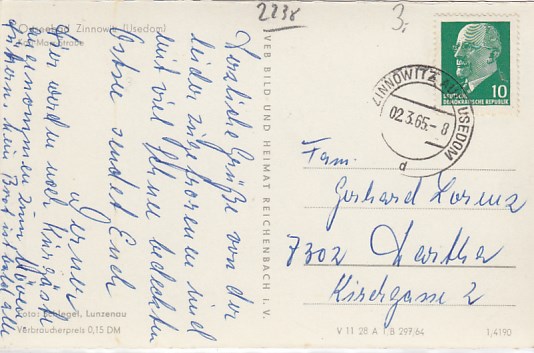 2238
3,-
Ostseebad Zinnowitz (Usedom)
Karl-Marx-Straße
Herzliche Grüße von der
leider zugefrorenen und
mit viel Schnee bedeckten
Ostsee sendet Euch
Werner
Hier werden noch Kurgäste
angenommen zum Möven
füttern, kein Boot ist bald alle
Foto: Schlegel, Lunzenau
Verbraucherpreis 0,15 DM
VEB BILD UND HEIMAT REICHENBACH I. V.
10
DEUTSCHE
DEMOKRATISCHE REPUBLIK
ZINNOWITZ AUF USEDOM
02.3.65.-8
d
Fam.
Gerhard Lorenz
7302 Hartha
Kirchgasse 2
V 11 28 A 1 B 297/64
1/4190